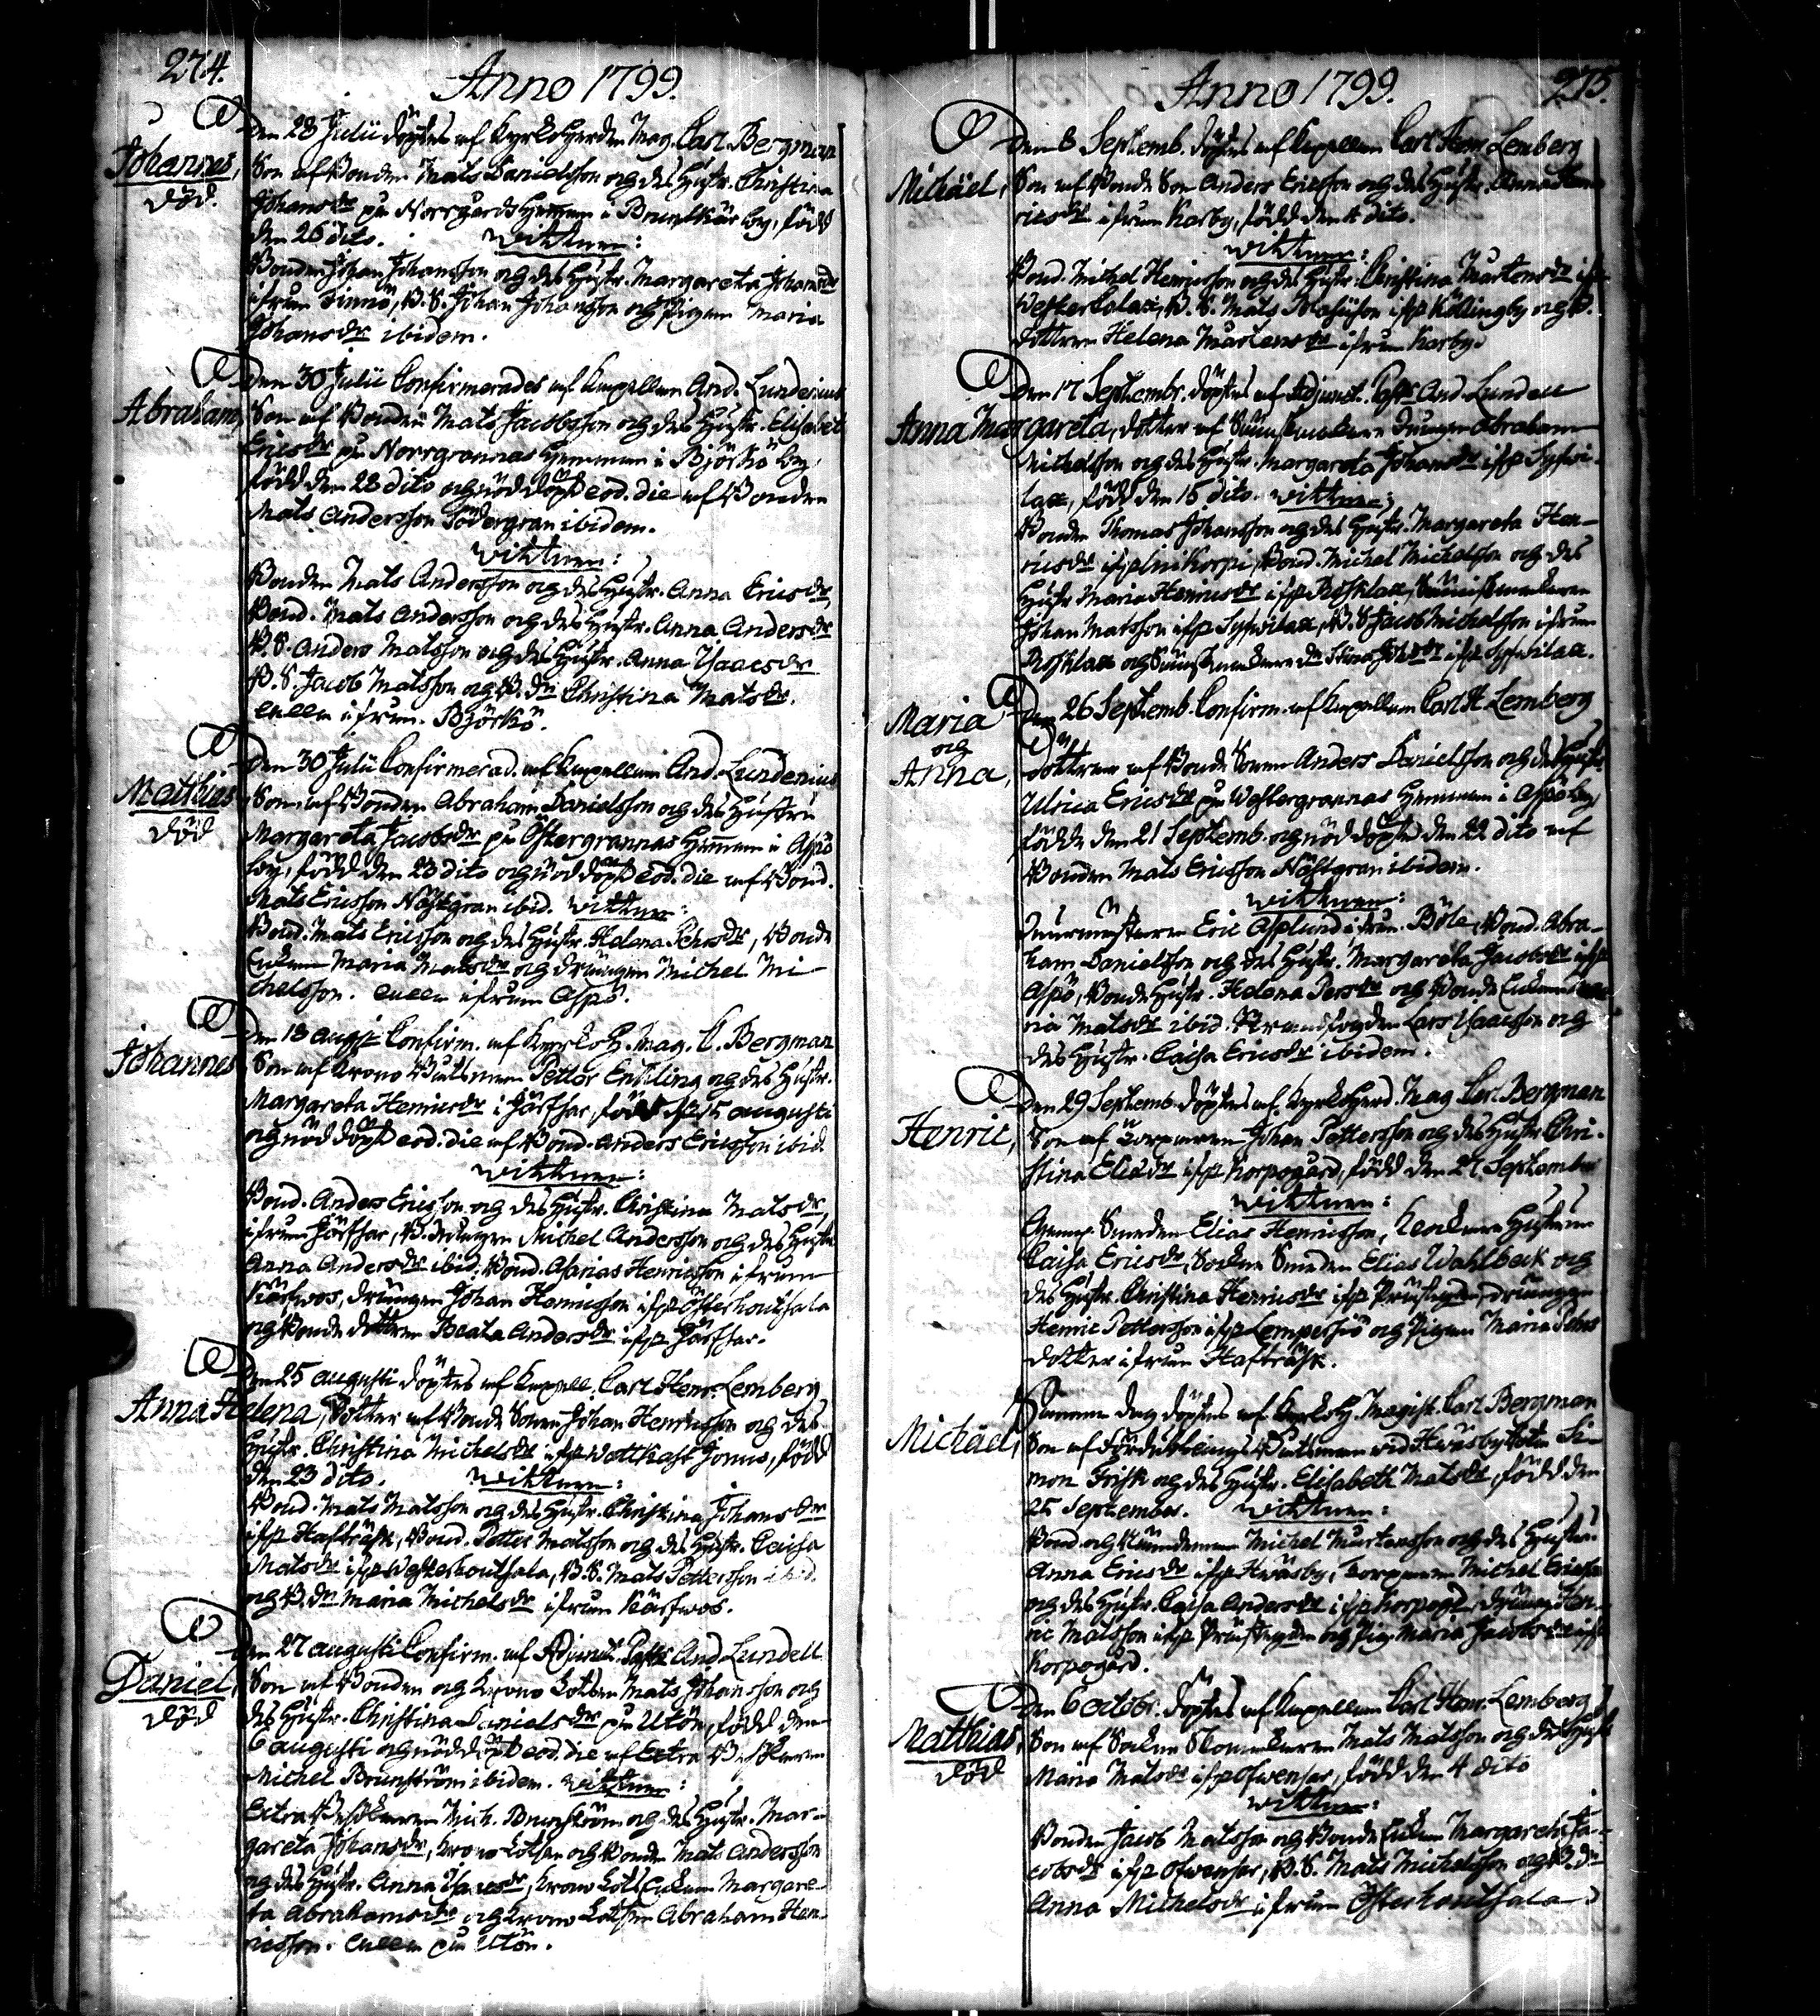 274.
Anno 1799.
Johannes,
död.
Den 28 Julii döptes af Kyrkoherden Mag. Carl Bergman
Son af Bonden Mats Danielsson och des Hustr. Christina
Johansdr på Norrgårds Hemman i Brunskär by, född
den 26 dito.
Wittnen:
Bonden Johan Johansson och des Hustr. Margareta Johansdr
ifrån Finnö, B. S. Johan Johansson och Pigan Maria
Johansdr ibidem.
Abraham,
Den 30 Julii Confirmerades af Kapellan And. Lundenius
Son af Bonden Mats Jacobsson och des Hustr. Elisabet
Ericsdr på Norrgrannas Hemman i Björkö by,
född den 28 dito och nöddöpt eod. die af Bonden
Mats Andersson Södergran ibidem.
Wittnen:
Bonden Mats Andersson och des Hustr. Anna Ericsdr,
Bond. Mats Andersson och des Hustr. Anna Andersdr
B. S. Anders Matsson och des Hustr. Anna Isaacsdr
B. S. Jacob Matsson och B. Dr Christina Matsdr.
allen ifrån Björkö.
Mathias
död
Den 30 Julii Confirmerad. af Kapellan And. Lundenius
Son af Bonden Abraham Danielsson och des Hustru
Margareta Jacobsdr på Östergrannas Hemman i Aspö
by, född den 28 dito och nöddöpt eod. die af Bond.
Mats Ericsson Nästgran ibid. Wittnen:
Bond. Mats Ericsson och des Hustr. Helena Pehrsdr, Bonde
Enkan Maria Matsdr och drängen Michel Mi-
chelsson. allen ifrån Aspö.
Johannes
Den 18 Augusti Confirm. af Kyrkoh. Mag. C. Bergman
Son af Krono Båtsman Petter Enhling och des Hustr.
Margareta Henricsdr i Järfsar, född 15 Augusti
och nöddöpt eod. die af Bond. Anders Ericsson ibid
Wittnen:
Bond. Anders Ericsson och des Hustr. Christina Matsdr,
ifrån Järfsar, B. drängen Michel Andersson och des Hustr
Anna Andersdr ibid. Bond. Asarias Henricsson ifrån
Kärfwos, drängen Johan Henricsson ifrå Österhoutsala
och Bonde dottren Beata Andersdr ifrå Järfsar.
Anna Helena,
Den 25 Augusti döptes af Kapell. Carl Henr. Lemberg
Dotter af Bonde Sonen Johan Henricsson och des
Hustr. Christina Michelsdr ifrå Wattkast Jonus, född
den 23 dito. Wittnen:
Bond. Mats Matsson och des Hustr. Christina Johansdr
ifrå Hafträsk, Bond. Petter Matsson och des Hustr. Caisa
Matsdr ifrå Westerhoutsala, B. S. Mats Pettersson ibid.
och B. Dr Maria Michelsdr ifrån Kärfwos.
Daniel,
död
Den 27 Augusti Confirm. af Adjunct. Past. And. Lundell
Son af Bonden och Krono Lotsen Mats Johansson och
des Hustr. Christina Danielsdr på Utön, född den
6 Augusti och nöddöpt eod. die af Extra Besökaren
Michel Brunström ibidem. Wittnen:
Extra Besökaren Mich. Brunström och des Hustr. Mar-
gareta Johansdr, Krono Lotsen och Bonden Mats Andersson
och des Hustr. Anna Isaacsdr, Krono Lots Enkan Margare-
ta Abrahamsdr och Krono Lotsen Abraham Hen-
ricsson. allen på Utön.
Anno 1799.
275.
Michäel,
Den 8 Septemb. döptes af Kapellan Carl Henr. Lemberg
Son af Bonde Son Anders Ericsson och des Hustr. Anna Hen-
ricsdr ifrån Korby, född den 4 dito.
Wittnen:
Bond. Michel Henricsson och des Hustr. Christina Mårtensdr
Westerlolax, B. S. Mats Matsson ifrå Kållingby och B.
dottren Helena Mårtensdr ifrån Korby.
Anna Margareta,
Den 17 Septembr. döptes af Adjunct. Past. And. Lundell
dotter af drängen Abraham
Michelsson och des Hustr. Margareta Johansdr ifrå Syswi-
lax, född den 15 dito. Wittnen:
Bonden Thomas Johansson och des Hustr. Margareta Hen-
ricsdr Bond. Michel Michelsson och des
Hustr Maria Henricsdr ifrå Rosklax,
Johan Matsson ifrå Syswilax, B. S. Jacob Michelsson ifrån
Rosklax och ifrå Syswilax.
Maria
och
Anna,
Den 26 Septemb. Confirm. af Kapellan Carl H. Lemberg
Döttrar af Bonde Sonen Anders Danielsson och des Hustr.
Ulrica Ericsdr på Westergrannas Hemman i Aspö by
födde den 21 Septemb. och nöddöpte den 22 dito af
Bonden Mats Ericsson Nästgran ibidem.
Wittnen:
Eric Asplund ifrån Böle, Bond. Abra-
ham Danielsson och des Hustr. Margareta Jacobsdr ifrå
Aspö, Bonde Hustr. Helena Persdr och Bonde Enkan Ma-
ria Matsdr ibid. Strandfogden Lars Isaacsson och
des Hustr. Caisa Ericsdr ibidem.
Henric,
Den 29 Septemb. döptes af Kyrkoherd. Mag Car. Bergman
Son af Torparen Johan Pettersson och des Hustr Chri-
stina Eliædr ifrå Korpogård, född den 27 September
Wittnen:
Smeden Elias Henricsson, Hustrun
Caisa Ericsdr, Sockne Smeden Elias Wahlbeck och
des Hustr. Christina Henricsdr ifrå Prästegården, drängen
Henric Pettersson ifrå Lempersjö och Pigan Maria Pehrs
dotter ifrån Hafträsk.
Michäel,
Samma dag döptes af Kyrkoh. Magist. Carl Bergman
Son af Båtsman wid Hwäsby Rote Si-
mon Frisk och des Hustr. Elisabeth Matsdr, född den
25 September. Wittnen:
Bond. och Nämndeman Michel Mårtensson och des Hustru
Anna Ericsdr ifrå Hwäsby, Torparen Michel Ericsson
och des Hustr. Caisa Andersdr ifrå Korpogd, dräng. Hen-
ric Matsson ifrå Prästegden och Pig. Maria Jacobsdr ifrå
Korpogård.
Matthias,
död
Den 6 Octobr. döptes af Kapellan Carl Henr. Lemberg
Son af Sockne Skomakaren Mats Matsson och des Hustr
Maria Matsdr ifrå Ofwensor, född den 4 dito
Wittnen:
Bonden Jacob Matsson och Bonde Enkan Margareta Ja-
cobsdr ifrå Ofwensor, B. S. Mats Michelsson och B. Dr
Anna Michelsdr ifrån Österhoutsala